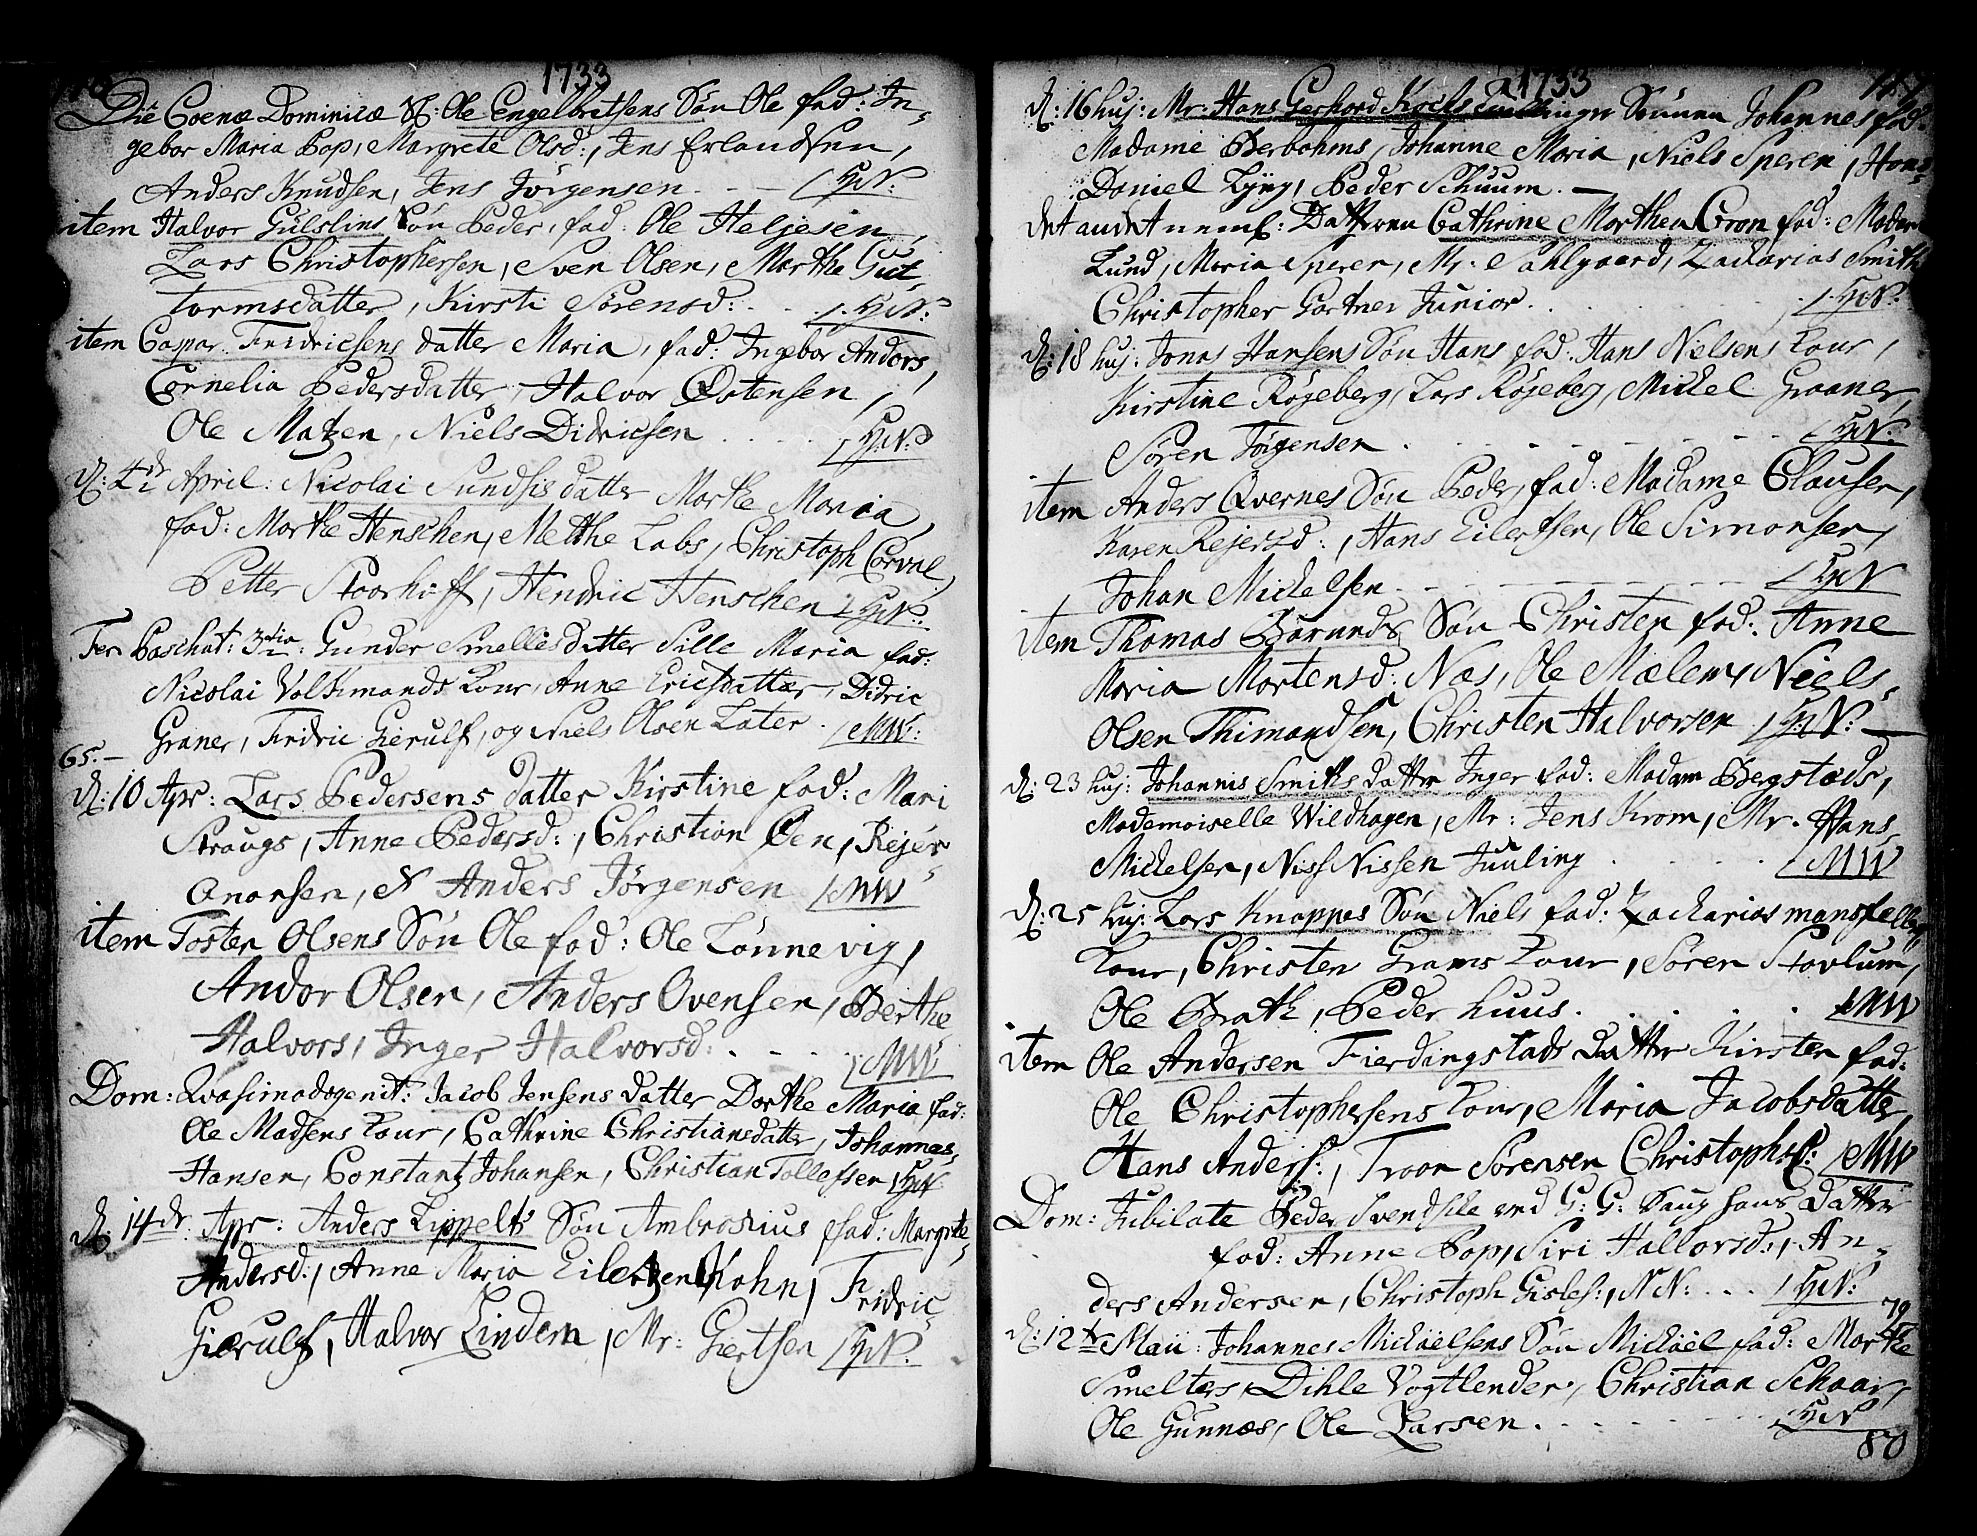 1733
Die Coenæ Dominicæ Ole Engelbretsens Søn Ole fad: In-
gebor Maria Pop, Margrete Olsd:, Jens Erlandsen,
Anders Knudsen, Jens Jörgensen. - - -
item Halvor Gülslins Søn Peder, fad: Ole Heljesen,
Lars Christophersen, Sven Olsen, Marthe Gut-
tormsdatter, Kirsti Sörensd: . .
item Caspar Fridricsens datter Maria, fad: Ingebor Anders,
Cornelia Pedersdatter, Halvor Østensen,
Ole Matzen, Niels Didricsen . . . .
d: 4de April: Nicolai Sundsis datter Marthe Maria,
fad: Marthe Henschen, Methe Labs, Christoph Corval,
Petter Stoorhoff, Hendric Henschen
Fer Paschat: 3tia: Gunder Smelles datter Sille Maria fad:
Nicolai Volkmands Konr, Anne Ericsdatter, Didric
Graner, Fridric Gierulf, og Niels Olsen Later . MW:
65. -
d: 10 Apr: Lars Pedersens datter Kirstine fad: Mari
Straugs, Anne Pedersd:, Christian Øen, Rejer
Anansen, & Anders Jörgensen MW
item Tosten Olsens Søn Ole fad: Ole Lönnevig,
Andor Olsen, Anders Ovensen, Berthe
Halvors, Inger Halvorsd: . - - . MW:
Dom: Qvasimodogenit: Jacob Jensens datter Dorthe Maria fad:
Ole Madsens Konr, Cathrine Christiansdatter, Johannes
Hansen, Constantz Johansen, Christian Tollefsen
d: 14de Apr: Anders Lippelts Søn Ambrosius fad: Margrete
Andersd:, Anne Maria Eilertzen Kohn, Fridric
Gierulf, Halvor Lindem, Mr: Giertsen
1733
d: 16 huj: Mr: Hans Gerhard Kochs Tvillinger Sønnen Johannes fad:
Madame Berbohms, Johanne Maria, Niels Speren, Hans
Daniel Lyng, Peder Schuum. -
det andet neml: Datteren Cathrine Marthea Cron fad: Madam
Lund, Maria Speren, Mr: Dahlgaard, Zacharias Smith
Christopher Gartner Junior. . . .
d: 18 huj: Jonas Hansens Søn Hans fad: Hans Nielsens Konr,
Kirstine Röjeberg, Lars Röjeberg, Mickel Graaner,
Sören Jörgensen . . - . - . - - . .
item Anders Qvernes Søn Peder, fad: Madame Clausen,
Karen Rejersd:, Hans Eilertsen, Ole Simonsen,
Johan Mickelsen - - - - - - - -
item Thomas Barunds Søn Christen fad: Anne
Maria Mortensd: Næs, Ole Mælem, Niels
Olsen Thimandsen, Christen Halvorsen
d: 23 huj: Johannis Smiths datter Inger fad: Madam Begstæds,
Mademoiselle Wildhagen, Mr: Jens Krom, Mr. Hans
Mickelsen, Niss Nissen Juuling . . . . MW
d: 25 huj: Lars Knappes Søn Niels fad: Zacharias mansfelles
Konr, Christen Grams Konr, Sören Stovlum,
Ole Brath, Peder huus. . . . . MW
item Ole Andersen Fierdingstads Datter Kirsten fad:
Ole Christophersens Konr, Maria Jacobsdatter,
Hans Anders:, Troon Sörensen Christophers: MW
Dom: Jubilate Peder Svendsile ved G: G: Haugs hans Datter
fad: Anne Pop, Siri Hallorsd:, An-
ders Andersen, Christoph Gisles:, N N: . . .
79
d: 12te Maii: Johannes Mickaelsens Søn Mickäel fad: Marthe
Smelters, Dihle Vogtlender, Christian Schaar,
Ole Gunnæs, Ole Larsen . - - - - - -
80